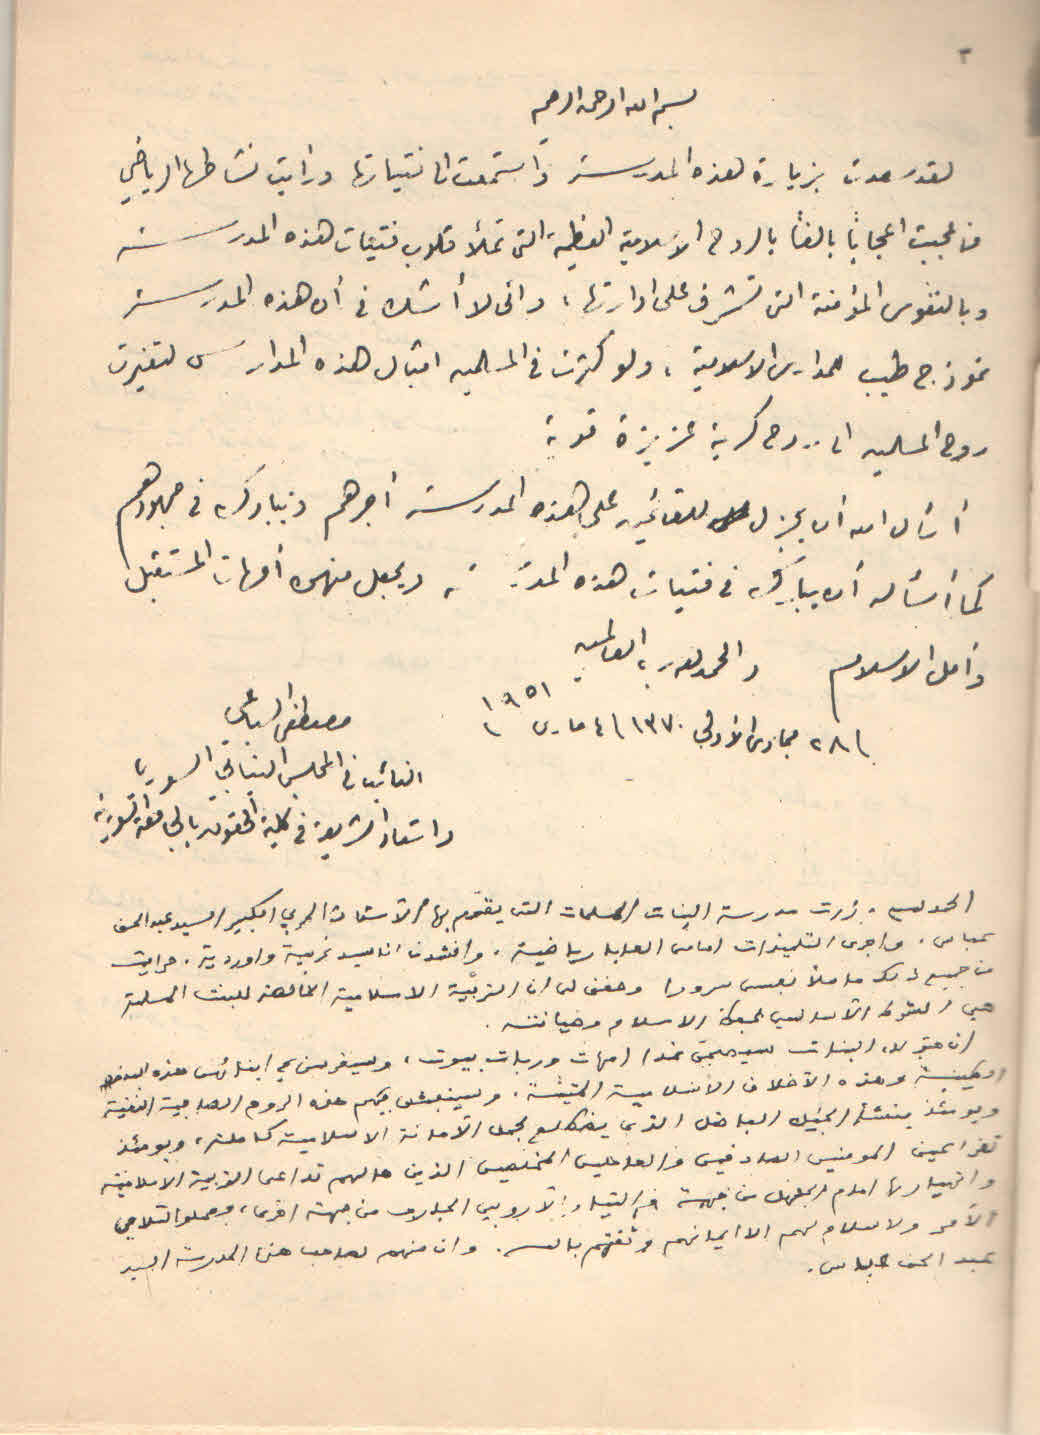 ٣
بسم الله الرحمن الرحيم
لقد سعدت بزيارة لهذه المدرسة واستمعت الى فتياتها ورأيت نشاطها الرياضي
فاعجبت اعجاباً بالغاً بالروح الاسلامية العظيمة التي تملأ قلوب فتيات هذه المدرسة
وبالنفوس المؤمنة التي تشرف على ادارتها ، واني لا أشك في أن هذه المدرسة
نموذج طيب للمدارس الاسلامية ، ولو كثرت في المسلمين امثال هذه المدارس لتغيرت
روح المسلمين الى روح كريمة عزيزة قوية
أسأل الله أن يجزل للقائمين على هذه المدرسة أجرهم ويبارك في جهودهم
كما أسأله أن يبارك في فتيات هذه المدرسة ويجعل منهن أمهات المستقبل
وأمل الاسلام والحمد لله رب العالمين
٢٨ جمادى الأولى ١٣٧٠ / ٤ مارس ١٩٥١
مصطفى السباعي
النائب في المجلس النيابي السوري
واستاذ الشريعة في كلية الحقوق بالجامعة السورية
الحمد لله . زرت مدرسة البنات المسلمات التي يقوم بها الأستاذ المربي الكبير السيد عبد الحق
عباس . واجرى التلميذات امامي العابا رياضية . وانشدن اناشيد عربية واوردية . فرأيت
من جميع ذلك ما ملأ نفسي سرورا وحقق لي ان التربية الاسلامية الخالصة للبنت المسلمة
هي الشرط الأساسي لحفظ الاسلام وصيانته .
ان هؤلاء البنات سيصبحن غدا امهات وربات بيوت ، وسيغرسن في ابنائهن هذه البذور
الطيبة وهذه الأخلاق الاسلامية المتينة . وسينفخن فيهم هذه الروح
ويومئذ ينشأ الجيل الفاضل الذي يضطلع بحمل الأمانة الاسلامية كاملة ، ويومئذ
تقر اعين المومنين الصادقين والعاملين المخلصين الذين هالهم تداعي التربية الاسلامية
وانهيارها امام الجهل من جهة والتيار الأروبي الجارف من جهة اخرى ، فعملوا لتلافي
الأمر ولا سلاح لهم الا ايمانهم وثقتهم بالله . وان منهم لصاحب هذه المدرسة السيد
عبد الحق عباس .